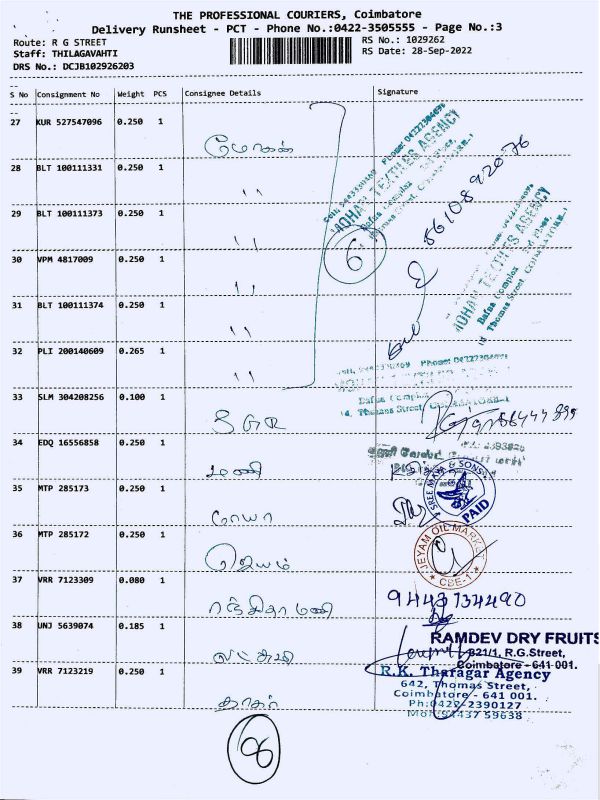 THE PROFESSIONAL COURIERS, Coimbatore
Delivery Runsheet - PCT - Phone No.:0422-3505555 - Page No.:3
Route: R G STREET
Staff: THILAGAVAHTI
DRS No.: DCJB102926203
RS No.: 1029262
RS Date: 28-Sep-2022
S No Consignment No Weight PCS Consignee Details Signature
27 KUR 527547096 0.250 1 மோகன்
28 BLT 100111331 0.250 1 ''
29 BLT 100111373 0.250 1 ''
30 VPM 4817009 0.250 1 ''
31 BLT 100111374 0.250 1 ''
32 PLI 200140609 0.265 1 ''
6
8610892076
MOHAN TEXTILES AGENCY
Bafna Complex
Thomas Street
MOHAN TEXTILES AGENCY
Bafna Complex
Thomas Street
Bafna Complex
Thomas Street
33 SLM 304208256 0.100 1
34 EDQ 16556858 0.250 1 மணி
SREE MANI & SONS
PAID
35 MTP 285173 0.250 1
36 MTP 285172 0.250 1 ஜெயம்
JEYAM OIL MARKET
CBE-1
37 VRR 7123309 0.080 1 ரஞ்சிதாமணி
9443734490
38 UNJ 5639074 0.185 1 லட்சுமி
RAMDEV DRY FRUITS
821/1, R.G.Street,
Coimbatore - 641 001.
39 VRR 7123219 0.250 1 தாகர்
R.K. Tharagar Agency
642, Thomas Street,
Coimbatore - 641 001.
Ph:0422-2390127
Mob:94437 59638
8